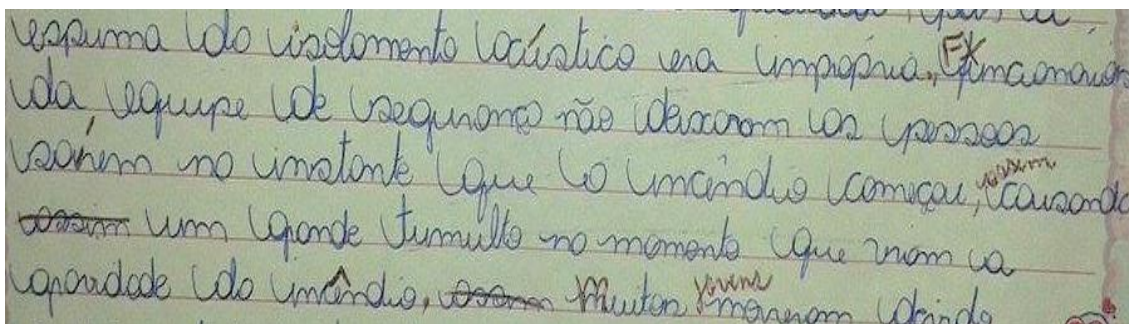 espuma do isolamento acústico era impropria, Funcionários
da equipe de segurança não deixaram as pessoas
sairem no instante que o incêndio começou, assim causando
assim um grande tumulto no momento que viram a
gravidade do incêndio, muitos jovens morreram devido